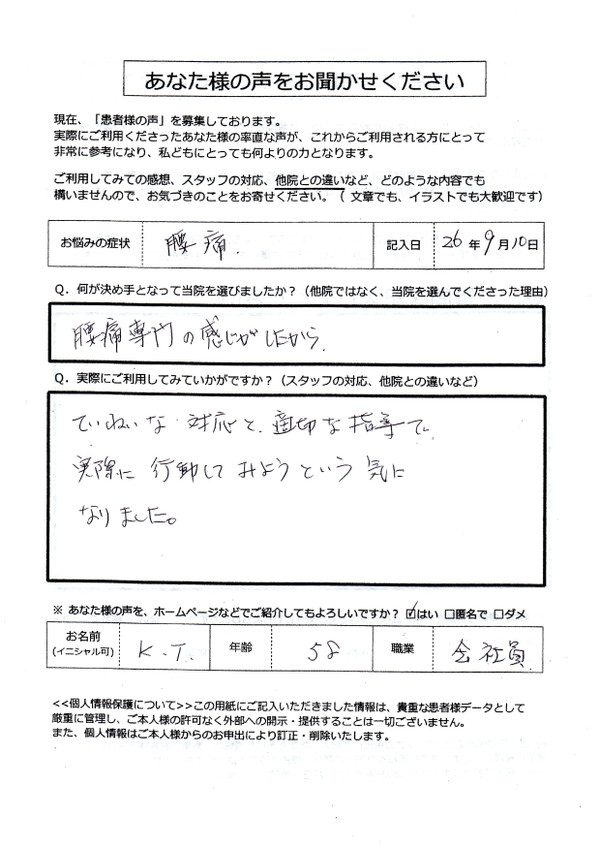 あなた様の声をお聞かせください
現在、「患者様の声」を募集しております。
実際にご利用くださったあなた様の率直な声が、これからご利用される方にとって
非常に参考になり、私どもにとっても何よりの力となります。
ご利用してみての感想、スタッフの対応、他院との違いなど、どのような内容でも
構いませんので、お気づきのことをお寄せください。（ 文章でも、イラストでも大歓迎です）
お悩みの症状 腰痛. 記入日 26年9月10日
Q．何が決め手となって当院を選びましたか？（他院ではなく、当院を選んでくださった理由）
腰痛専門の感じがしたから.
Q．実際にご利用してみていかがですか？（スタッフの対応、他院との違いなど）
ていねいな対応と、適切な指導で、
実際に行動してみようという気に
なりました。
※ あなた様の声を、ホームページなどでご紹介してもよろしいですか？ ☑はい □匿名で □ダメ
お名前 (イニシャル可) K.T. 年齢 58 職業 会社員.
<<個人情報保護について>>この用紙にご記入いただきました情報は、貴重な患者様データとして
厳重に管理し、ご本人様の許可なく外部への開示・提供することは一切ございません。
また、個人情報はご本人様からのお申出により訂正・削除いたします。